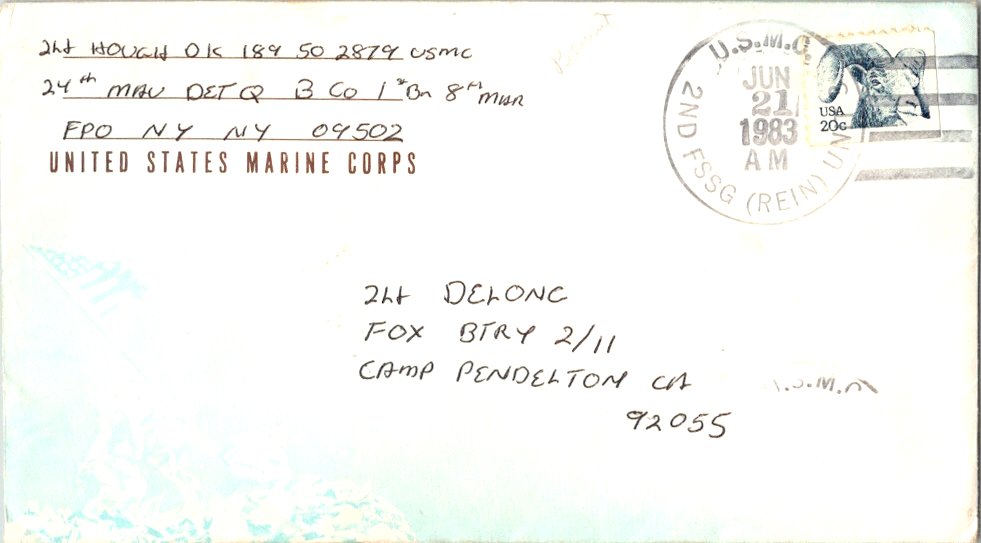 2Lt HOUGH OK 189 50 2879 USMC
24th MAU DET Q B CO 1st Bn 8th MAR
FPO NY NY 09502
UNITED STATES MARINE CORPS
U.S.M.C.
JUN
21
1983
AM
2ND FSSG (REIN)
USA
20c
2Lt DELONG
FOX BTRY 2/11
CAMP PENDELTON CA
92055